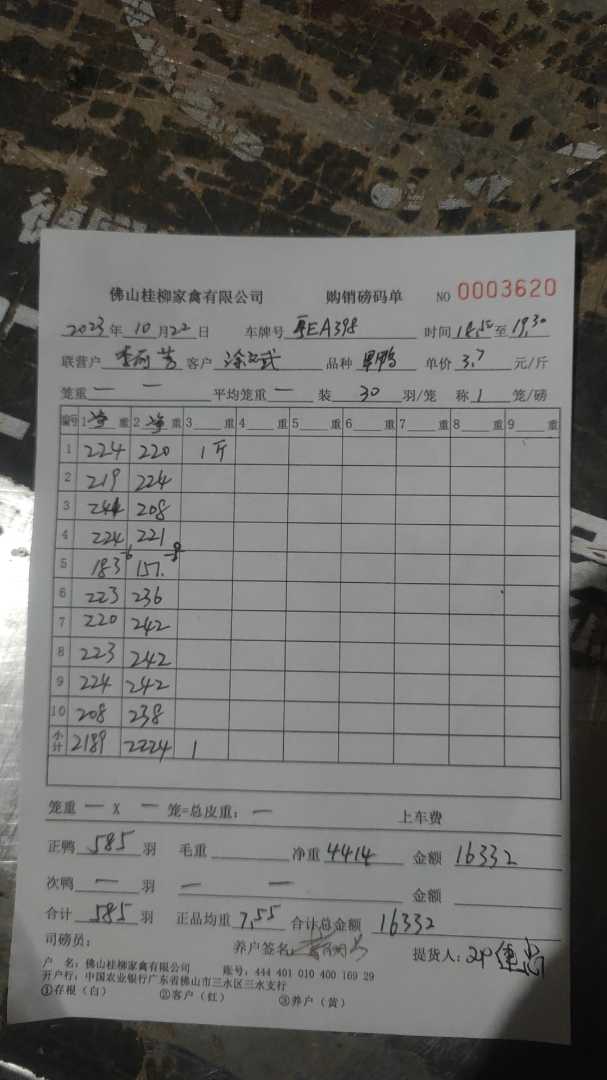 佛山桂柳家禽有限公司 购销磅码单 NO 0003620
2023年 10月 22日 车牌号 粤EA398 时间 18.50至 19.30
联营户 客户 品种 单价 3.7 元/斤
笼重 — — 平均笼重 — 装 30 羽/笼 称 1 笼/磅
编号 1 净 重 2 净 重 3 重 4 重 5 重 6 重 7 重 8 重 9 重
1 224 220 1斤
2 219 224
3 241 208
4 224 221
5 183-6 157.-8
6 223 236
7 220 242
8 223 242
9 224 242
10 208 238
小计 2189 2224 1
笼重 — X — 笼=总皮重: — 上车费
正鸭 585 羽 毛重 净重 4414 金额 16332
次鸭 — 羽 — — 金额
合计 585 羽 正品均重 7.55 合计总金额 16332
司磅员: 养户签名 提货人:
户 名: 佛山桂柳家禽有限公司 账号: 444 401 010 400 169 29
开户行: 中国农业银行广东省佛山市三水区三水支行
①存根(白) ②客户(红) ③养户(黄)